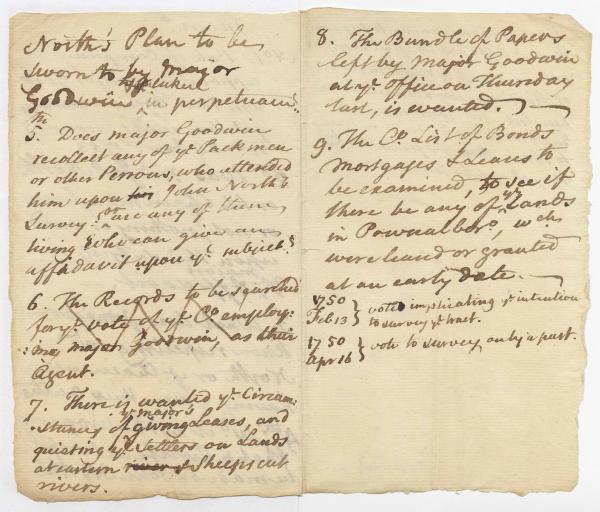 North's Plan to be
sworn to by Major
Goodwin in perpetuam
5. Does major Goodwin
recollect any of yᵉ Packmen
or other Persons, who attended
him upon his John North's
Survey. are any of them
living & who can give an
affidavit upon yᵉ subject.
6. The Records to be searched
for yᵉ vote of yᵉ Cᵒ employ:
:ing major Goodwin, as their
Agent.
7. There is wanted yᵉ Circum:
:stances of yᵉ major's giving Leases, and
quieting yᵉ Settlers on Lands
at eastern river & Sheepscut
rivers.
8. The Bundle of Papers
left by Major Goodwin
at yᵉ office on Thursday
last, is wanted.
9. The Cᵒ List of Bonds
Mortgages & Leases to
be examined, to see if
there be any of yᵉ Lands
in Pownalborᵒ, wch
were leasd or granted
at an early date.
1750
Feb 13 } vote implicating yᵉ intention
to survey yᵉ tract.
1750
Apr 16 } vote to survey only a part.